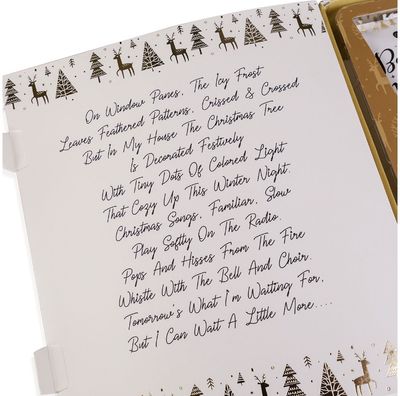 On Window Panes, The Icy Frost
Leaves Feathered Patterns, Crissed & Crossed
But In My House The Christmas Tree
Is Decorated Festively
With Tiny Dots Of Colored Light
That Cozy Up This Winter Night.
Christmas Songs, Familiar, Slow
Play Softly On The Radio.
Pops And Hisses From The Fire
Whistle With The Bell And Choir.
Tomorrow's What I'm Waiting For,
But I Can Wait A Little More....